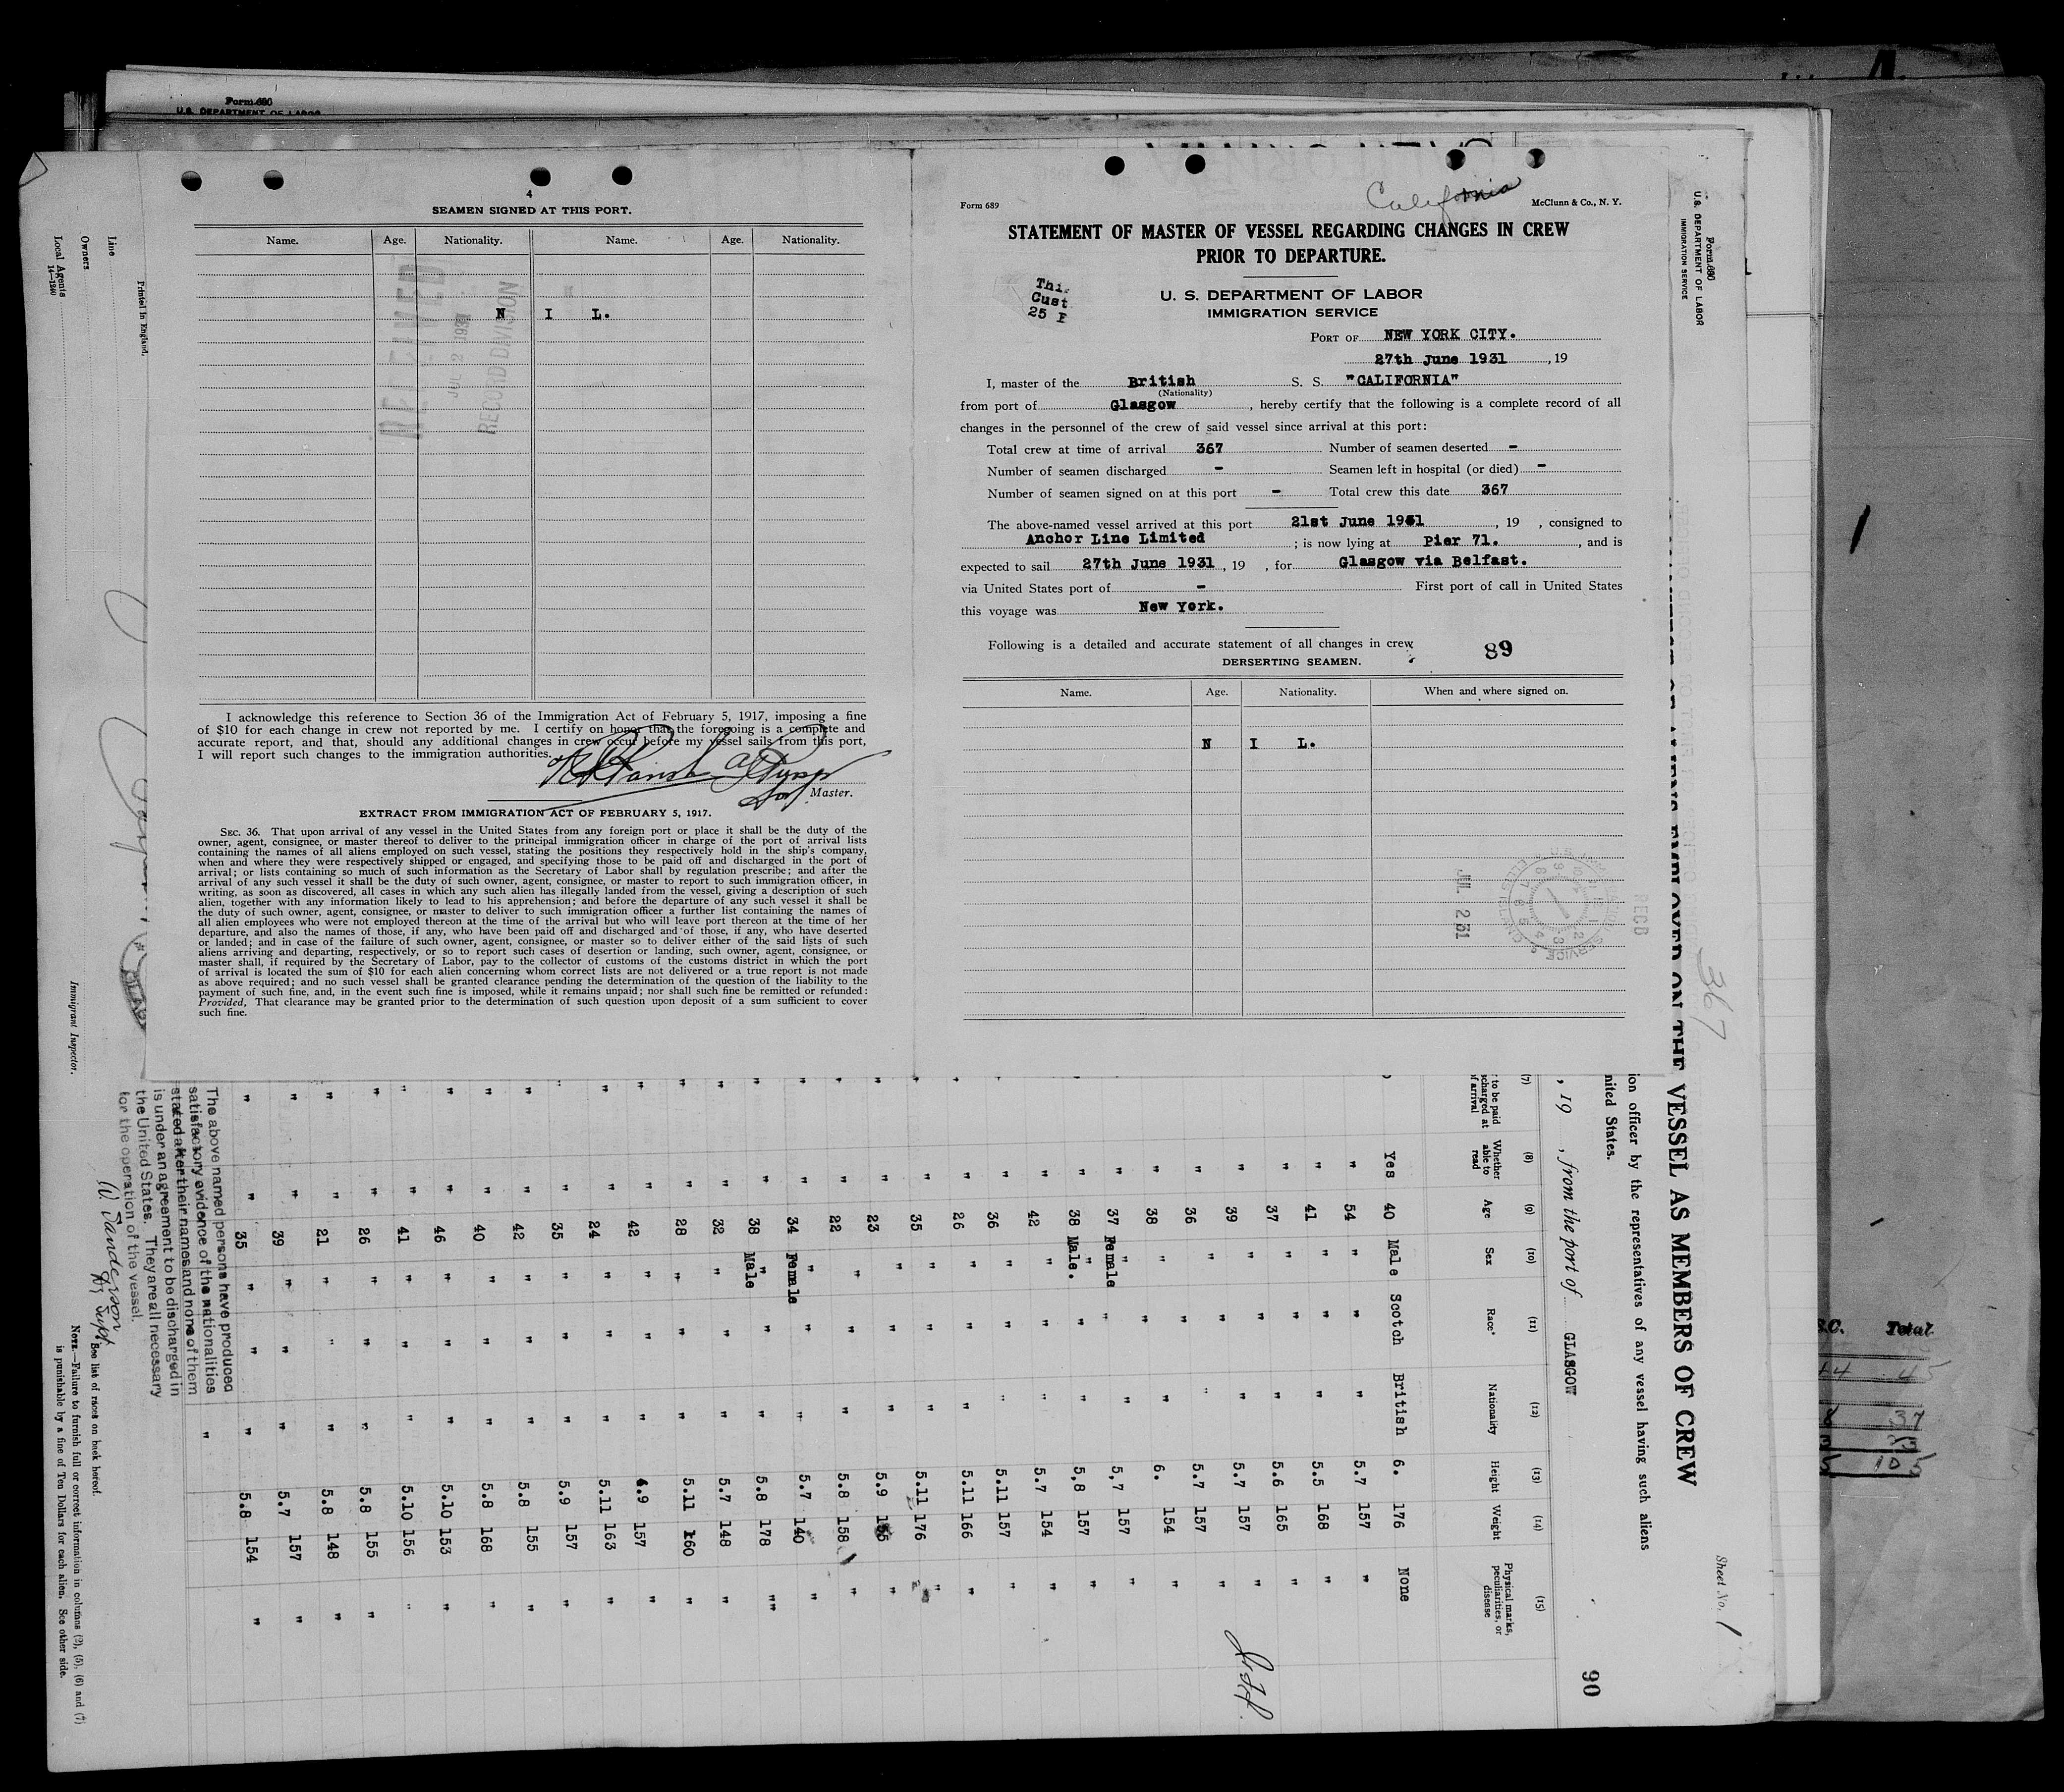 Form 680
U.S. DEPARTMENT OF LABOR
4
SEAMEN SIGNED AT THIS PORT.
Name. Age. Nationality. Name. Age. Nationality.
N I L.
RECEIVED
JUL 2 1931
RECORD DIVISION
I acknowledge this reference to Section 36 of the Immigration Act of February 5, 1917, imposing a fine
of $10 for each change in crew not reported by me. I certify on honor that the foregoing is a complete and
accurate report, and that, should any additional changes in crew occur before my vessel sails from this port,
I will report such changes to the immigration authorities.
Master.
EXTRACT FROM IMMIGRATION ACT OF FEBRUARY 5, 1917.
SEC. 36. That upon arrival of any vessel in the United States from any foreign port or place it shall be the duty of the
owner, agent, consignee, or master thereof to deliver to the principal immigration officer in charge of the port of arrival lists
containing the names of all aliens employed on such vessel, stating the positions they respectively hold in the ship's company,
when and where they were respectively shipped or engaged, and specifying those to be paid off and discharged in the port of
arrival; or lists containing so much of such information as the Secretary of Labor shall by regulation prescribe; and after the
arrival of any such vessel it shall be the duty of such owner, agent, consignee, or master to report to such immigration officer, in
writing, as soon as discovered, all cases in which any such alien has illegally landed from the vessel, giving a description of such
alien, together with any information likely to lead to his apprehension; and before the departure of any such vessel it shall be
the duty of such owner, agent, consignee, or master to deliver to such immigration officer a further list containing the names of
all alien employees who were not employed thereon at the time of the arrival but who will leave port thereon at the time of her
departure, and also the names of those, if any, who have been paid off and discharged and of those, if any, who have deserted
or landed; and in case of the failure of such owner, agent, consignee, or master so to deliver either of the said lists of such
aliens arriving and departing, respectively, or so to report such cases of desertion or landing, such owner, agent, consignee, or
master shall, if required by the Secretary of Labor, pay to the collector of customs of the customs district in which the port
of arrival is located the sum of $10 for each alien concerning whom correct lists are not delivered or a true report is not made
as above required; and no such vessel shall be granted clearance pending the determination of the question of the liability to the
payment of such fine, and, in the event such fine is imposed, while it remains unpaid; nor shall such fine be remitted or refunded:
Provided, That clearance may be granted prior to the determination of such question upon deposit of a sum sufficient to cover
such fine.
California
Form 689 McClunn & Co., N. Y.
STATEMENT OF MASTER OF VESSEL REGARDING CHANGES IN CREW
PRIOR TO DEPARTURE.
U. S. DEPARTMENT OF LABOR
IMMIGRATION SERVICE
PORT OF NEW YORK CITY.
27th June 1931, 19
I, master of the British S. S. "CALIFORNIA"
(Nationality)
from port of Glasgow, hereby certify that the following is a complete record of all
changes in the personnel of the crew of said vessel since arrival at this port:
Total crew at time of arrival 367 Number of seamen deserted -
Number of seamen discharged - Seamen left in hospital (or died) -
Number of seamen signed on at this port - Total crew this date 367
The above-named vessel arrived at this port 21st June 1931, 19 , consigned to
Anchor Line Limited ; is now lying at Pier 71. , and is
expected to sail 27th June 1931, 19 , for Glasgow via Belfast.
via United States port of - First port of call in United States
this voyage was New York.
Following is a detailed and accurate statement of all changes in crew
89
DERSERTING SEAMEN.
Name. Age. Nationality. When and where signed on.
N I L.
JUL 2 31
RECD
Form 680
U.S. DEPARTMENT OF LABOR
IMMIGRATION SERVICE
367
Sheet No. 1
EMPLOYED ON THE VESSEL AS MEMBERS OF CREW
ion officer by the representatives of any vessel having such aliens
nited States.
, 19 , from the port of GLASGOW
90
(7) (8) (9) (10) (11) (12) (13) (14) (15)
to be paid
scharged at
of arrival
Whether able to read Age Sex Race* Nationality Height Weight Physical marks, peculiarities, or disease
Yes 40 Male Scotch British 6. 176 None
" 54 " " " 5.7 157 "
" 41 " " " 5.5 168 "
" 37 " " " 5.6 165 "
" 39 " " " 5.7 157 "
" 36 " " " 5.7 157 "
" 38 " " " 6. 154 "
" 37 Female " " 5,7 157 "
" 38 Male. " " 5,8 157 "
" 42 " " " 5.7 154 "
" 36 " " " 5.11 157 "
" 26 " " " 5.11 166 "
" 35 " " " 5.11 176 "
" 23 " " " 5.9 "
" 22 " " " 5.8 158 "
" 34 Female " " 5.7 140 "
" 38 Male " " 5.8 178 "
" 32 " " " 5.7 148 "
" 28 " " " 5.11 160 "
" 42 " " " 4.9 157 "
" 24 " " " 5.11 163 "
" 35 " " " 5.9 157 "
" 42 " " " 5.8 155 "
" 40 " " " 5.8 168 "
" 46 " " " 5.10 153 "
" 41 " " " 5.10 156 "
" 26 " " " 5.8 155 "
" 21 " " " 5.8 148 "
" 39 " " " 5.7 157 "
" 35 " " " 5.8 154 "
The above named persons have produced
satisfactory evidence of the nationalities
stated after their names and none of them
is under an agreement to be discharged in
the United States. They are all necessary
for the operation of the vessel.
* See list of races on back hereof.
NOTE.—Failure to furnish full or correct information in columns (2), (5), (6) and (7)
is punishable by a fine of Ten Dollars for each alien. See other side.
Printed in England.
Line
Owners
Local Agents
14—1240
Immigrant Inspector.
S.C. Total
37
105